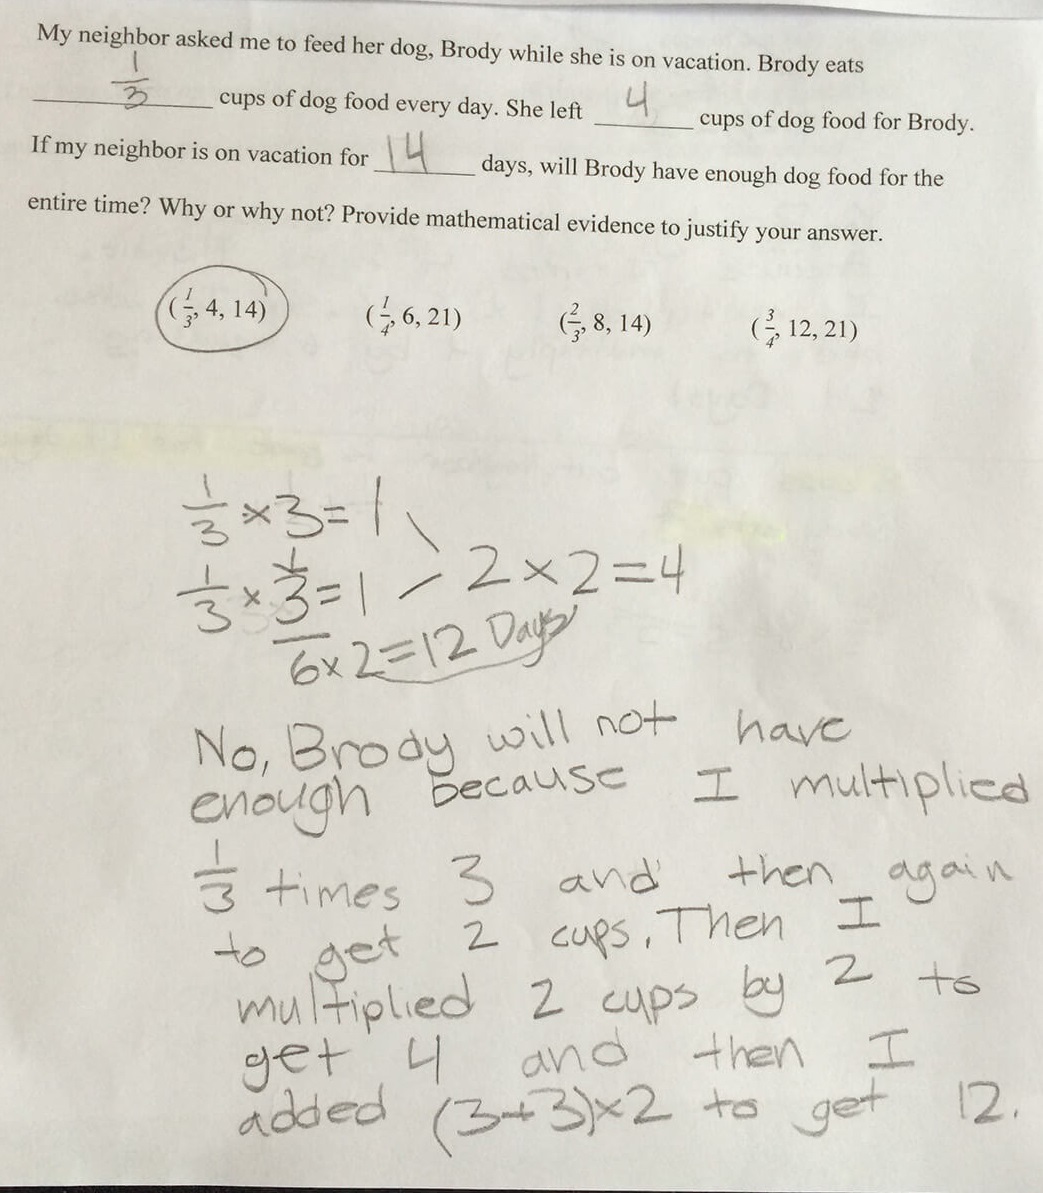 My neighbor asked me to feed her dog, Brody while she is on vacation. Brody eats
1/3 cups of dog food every day. She left 4 cups of dog food for Brody.
If my neighbor is on vacation for 14 days, will Brody have enough dog food for the
entire time? Why or why not? Provide mathematical evidence to justify your answer.
(1/3, 4, 14) (1/4, 6, 21) (2/3, 8, 14) (3/4, 12, 21)
1/3 × 3 = 1
1/3 × 3 = 1 2 × 2 = 4
6 × 2 = 12 Days
No, Brody will not have
enough because I multiplied
1/3 times 3 and then again
to get 2 cups. Then I
multiplied 2 cups by 2 to
get 4 and then I
added (3+3)×2 to get 12.